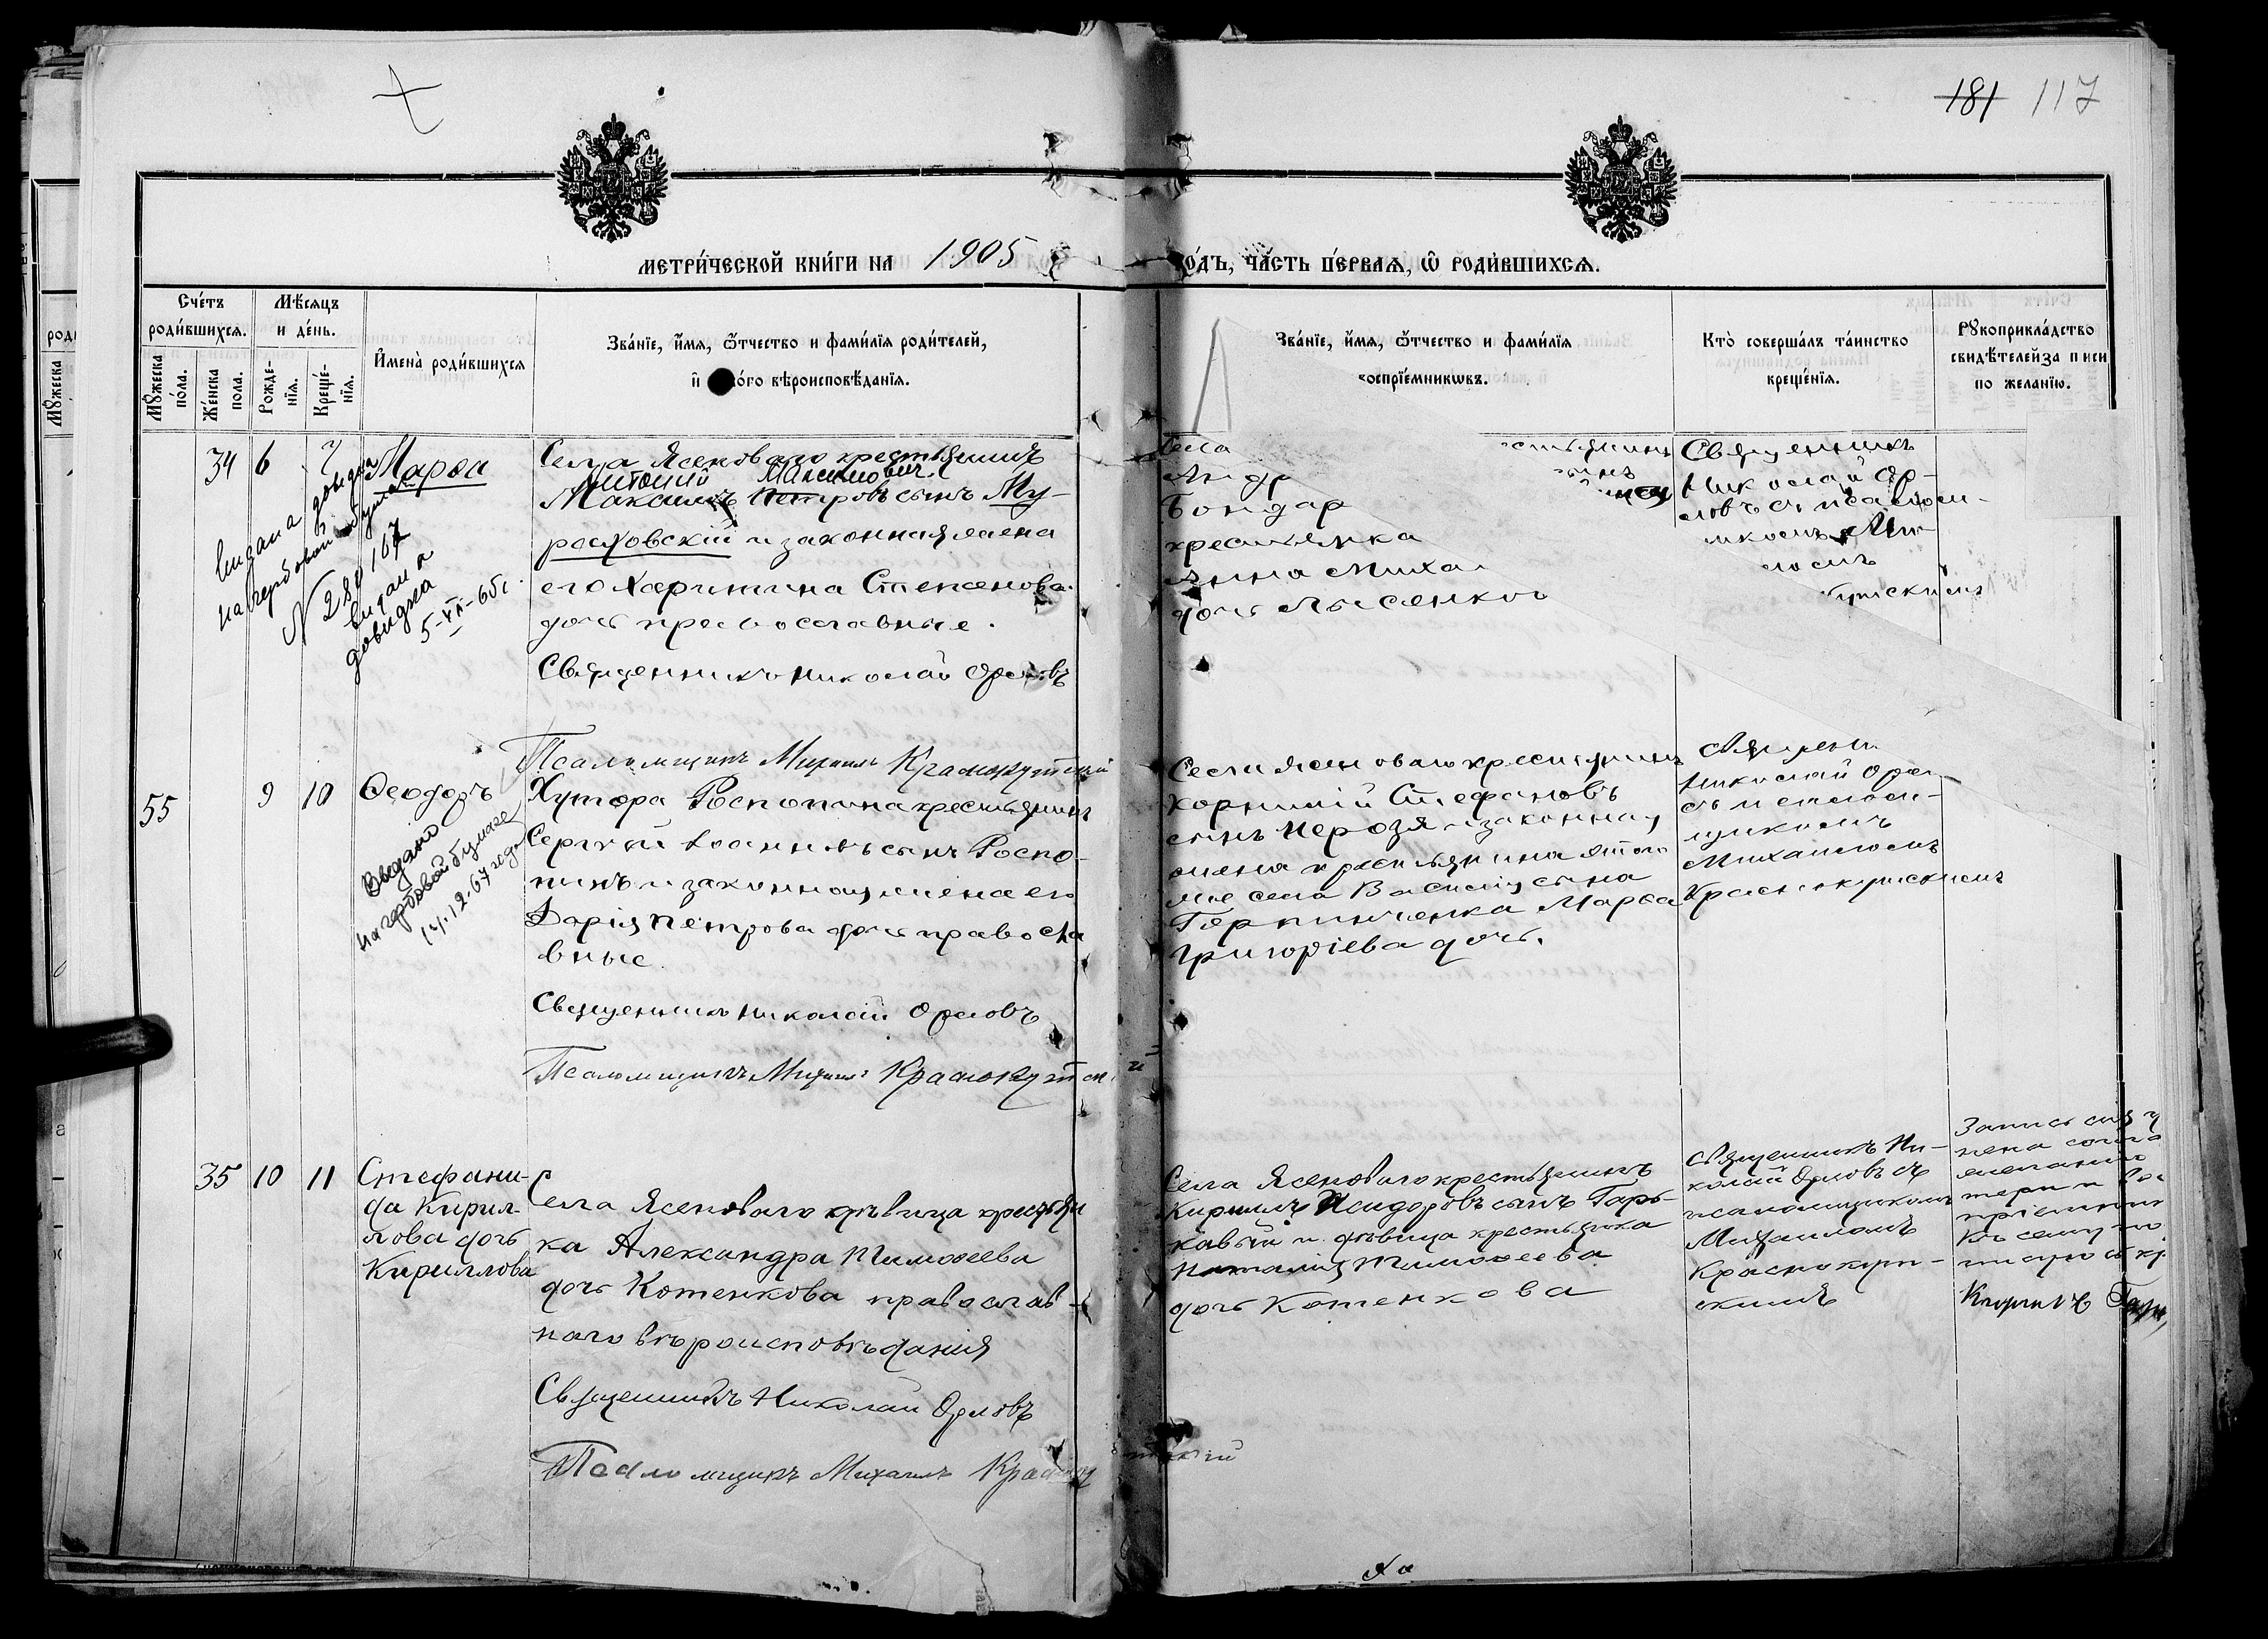 181 117
МЕТРИ́ЧЕСКОЙ КНИ́ГИ НА 1905
ОДЪ, ЧА́СТЬ ПЕ́РВАѦ, Ѿ РОДИ́ВШИХСѦ.
Сче́тъ роди́вшихсѧ.
Мꙋ́жеска по́ла.
Же́нска пола.
Мѣ́сѧцъ и де́нь.
Рожде-нїѧ.
Креще́-нїѧ.
И҆мена̀ роди́вшихсѧ
Зва́нїе, и҆́мѧ, ѻ҆́тчество и фами́лїѧ роди́телей,
вѣроисповѣ́данїѧ.
Зва́нїе, и҆́мѧ, ѻ҆́тчество и фами́лїѧ
воспрїе́мникωвъ.
Кто̀ соверша́лъ та́инство
креще́нїѧ.
Рꙋкоприкла́дство
свидѣ́телей за писи
по жела́нїю.
34 6 7
Марѳа
Видана довідка
на гербовой бумаге
N 280167
видана
довидка
5-VII-65г.
Села Ясеноваго крестьянинъ
Антоній Максимович
Максимъ Петровъ сынъ Му-
роховскій и законная жена
его Харитина Степанова
дочь православные.
Священникъ Николай Орловъ
Псаломщикъ Михаилъ Краснокутскій
Села
Андр
Бондар
крестьянка
Анна Миха
дочь Лысенков
Священникъ
Николай Ор-
ловъ съ псаломщи-
комъ Ми-
ломъ
кутскимъ
55 9 10
Ѳеодоръ
Видано
на гербовой бумаге
14.12.67 года
Хутора Роспопина крестьянинъ
Сергій Іоанновъ сынъ Роспо-
пинъ и законная жена его
Дарія Петрова дочь правосла
вные
Священникъ Николай Орловъ
Псаломщикъ Михаилъ Краснокутскій
Села Ясеноваго крестьянинъ
Корнилій Стефановъ
сынъ и законная
жена крестьянина этого
же села Василія сына
Марѳа
Григоріева дочь.
Священ
Николай Орло
съ псаломщикомъ
Михаиломъ
Краснокутскимъ
35 10 11
Стефани-
да Кирил-
лова дочь
Кириллова
Села Ясеноваго дѣвица крестьян
ка Александра Тимоѳеева
дочь Котенкова православ-
наго вѣроисповѣданія
Священникъ Николай Орловъ
Псаломщикъ Михаилъ Краснокутскій
Села Ясеноваго крестьянинъ
Кириллъ Исидоровъ сынъ Гарь-
кавый и дѣвица крестьянка
Наталія Тимоѳеева
дочь Котенкова
Священникъ Ни-
колай Орловъ съ
псаломщикомъ
Михаиломъ
Краснокут-
скимъ
Запись сія у
нена согла
желанію
тери и вос
пріемник
Къ сему по
Кирилъ Гарь